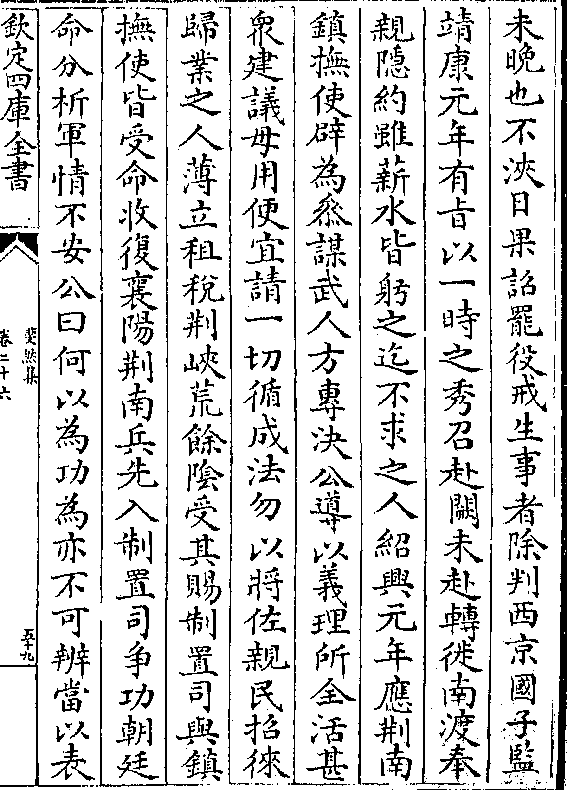 未晚也不浹日果詔罷役戒生事者除判西京國子監
靖康元年有㫖以一時之秀召赴闕未赴轉徙南渡奉
親隱約雖薪水皆躬之迄不求之人紹興元年應荆南
鎮撫使辟為叅謀武人方專決公導以義理所全活甚
衆建議毋用便宜請一切循成法勿以將佐親民招徠
歸業之人薄立租税荆峽荒餘隂受其賜制置司與鎮
撫使皆受命收復襄陽荆南兵先入制置司争功朝廷
命分析軍情不安公曰何以為功為亦不可辨當以表
欽定四庫全書
斐然集
卷二十六
五十九